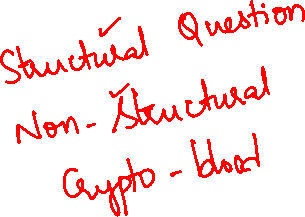 Structural Question
Non-Structural
Crypto-